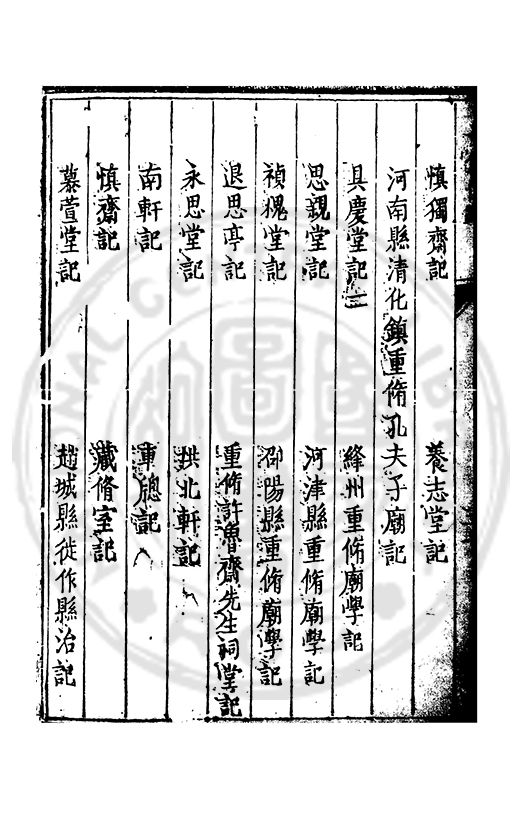 慎獨齋記 養志堂記
河南縣清化鎮重脩孔夫子廟記
具慶堂記二 絳州重脩廟學記
思親堂記 河津縣重脩廟學記
禎槐堂記 郃陽縣重脩廟學記
退思亭記 重脩許魯齋先生祠堂記
永思堂記 拱北軒記
南軒記 車牕記
慎齋記 藏脩室記
慕萱堂記 趙城縣徙作縣治記